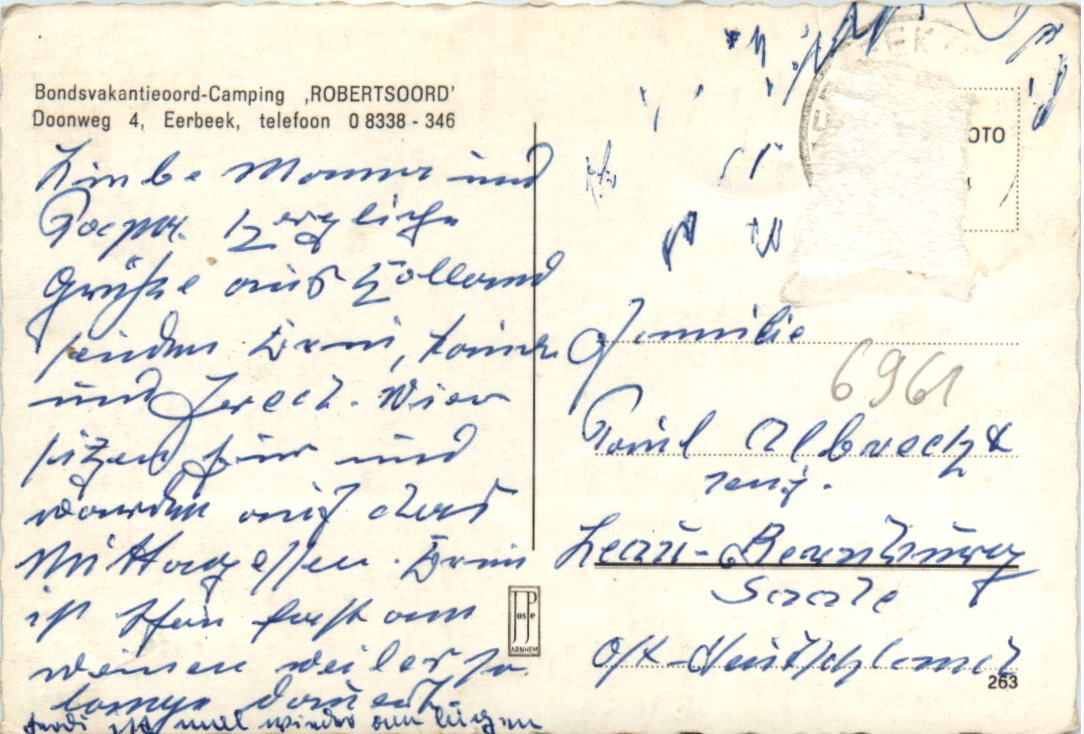 Bondsvakantieoord-Camping ‚ROBERTSOORD'
Doonweg 4, Eerbeek, telefoon 0 8338 - 346
Liebe Mama und
Papa. Herzliche
Grüße aus Holland
senden Erni,
und Gerect. Wier
sitzen hier und
warten auf das
Mittagessen. Erni
ist schon fast am
weinen weil es so
lange dauert
ist mal wieder am lügen
EEK
OTO
Familie
6961
Paul Albrecht
Leau-Bernburg
Saale
Ost-Deutschland
JosPe
ARNHEM
263